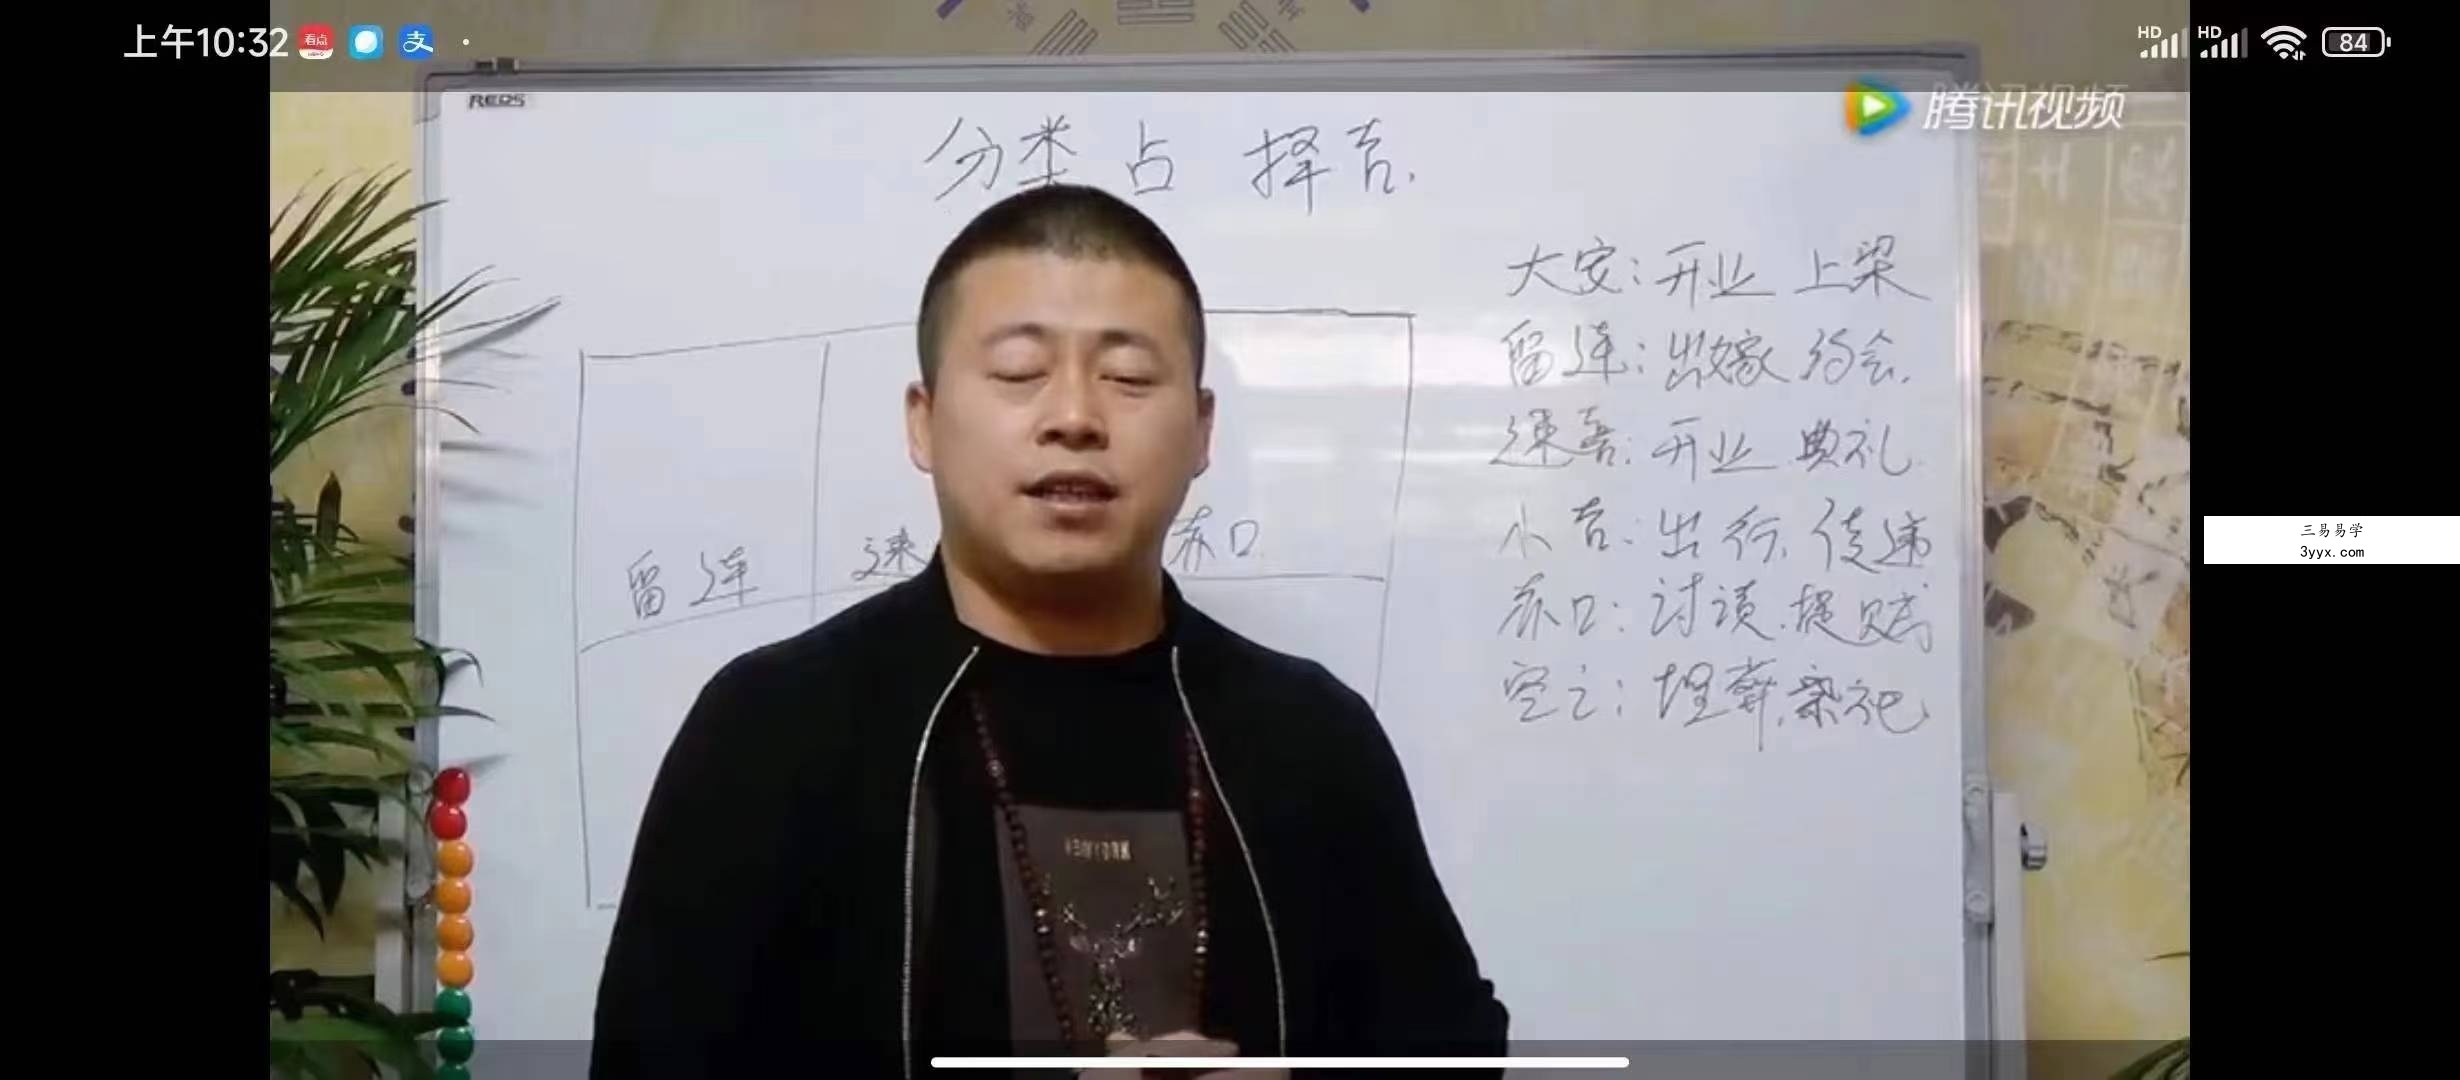 上午10:32
看点
支
HD
HD
84
REDS
腾讯视频
分类占 择吉.
大安:开业 上梁
留连:出嫁 约会.
速喜:开业.典礼.
小吉:出行.传递
赤口:讨债.提货
空亡:埋葬.祭祀
留连
速
赤口
三易易学
3yyx.com
NEWYORK